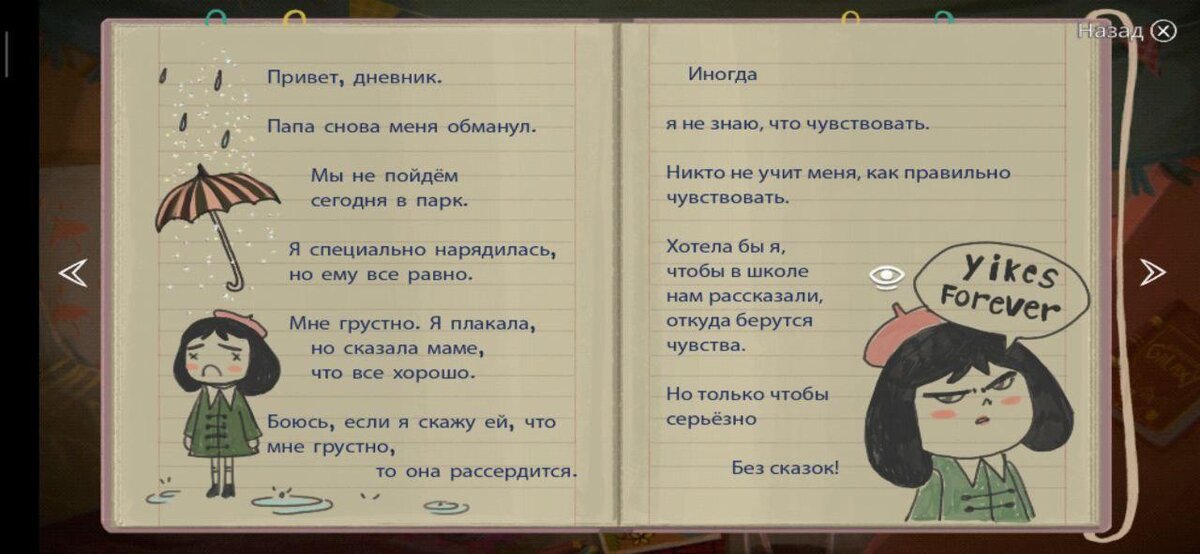 Назад
Привет, дневник.
Папа снова меня обманул.
Мы не пойдём
сегодня в парк.
Я специально нарядилась,
но ему все равно.
Мне грустно. Я плакала,
но сказала маме,
что все хорошо.
Боюсь, если я скажу ей, что
мне грустно,
то она рассердится.
Иногда
я не знаю, что чувствовать.
Никто не учит меня, как правильно
чувствовать.
Хотела бы я,
чтобы в школе
нам рассказали,
откуда берутся
чувства.
Но только чтобы
серьёзно
Без сказок!
Yikes
Forever